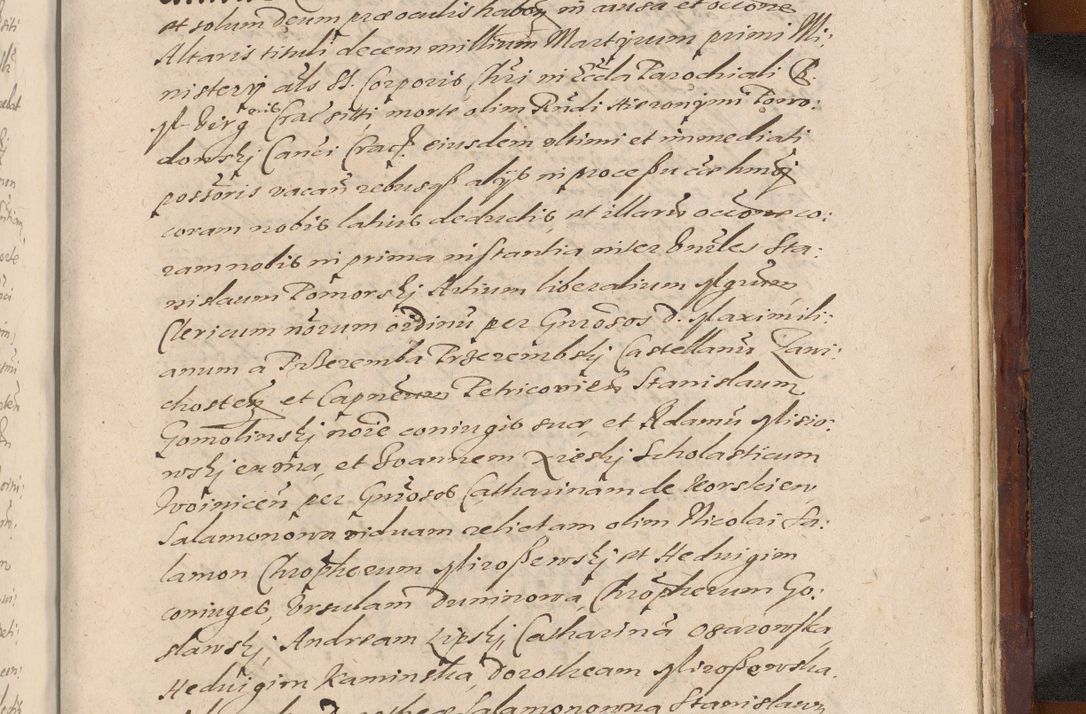 et solum Deum præ oculis haben in causa et occōne
Altaris tituli decem millium Martyrum primi Mi:
nisterÿ als SS. Corporis Chri in Eccla Parochiali B.
M. Virg: Crac sitti morte olim Rndi Hieronymi Powo:
dowskj Canci Crac. eiusdem ultimi et immediati
possoris vacan rebusqß alÿs in processu
coram nobis latius deductis, et illaru occōne co:
ram nobis in prima instantia inter Vnrles Sta:
nislaum Pomorskj Artium liberalium Mgrum
Clericum norum ordinu per Gnrosos D. Maximili:
anum a Przeremba Przerembskj Castellanu Zawi:
chosten et Capneum Petricovien Stanislaum
Gomolinskj noie coniugis suæ, et Adamu Misio:
wskj ex ma, et Joannem Rzeskj Scholasticum
Woinicen per Gnrosos Catharinam de Korskiew
Salamonowa viduam relictam olim Nicolai Sa:
lamon Chropherum Miroßewskj et Heduigim
coniuges, Vrsulam Duninowa, Chropherum Go:
slawskj, Andream Lipskj, Catharina Ozarowska,
Heduigim Kaminska, Dorotheam Miroßowska
Salamonowna Stanislaum